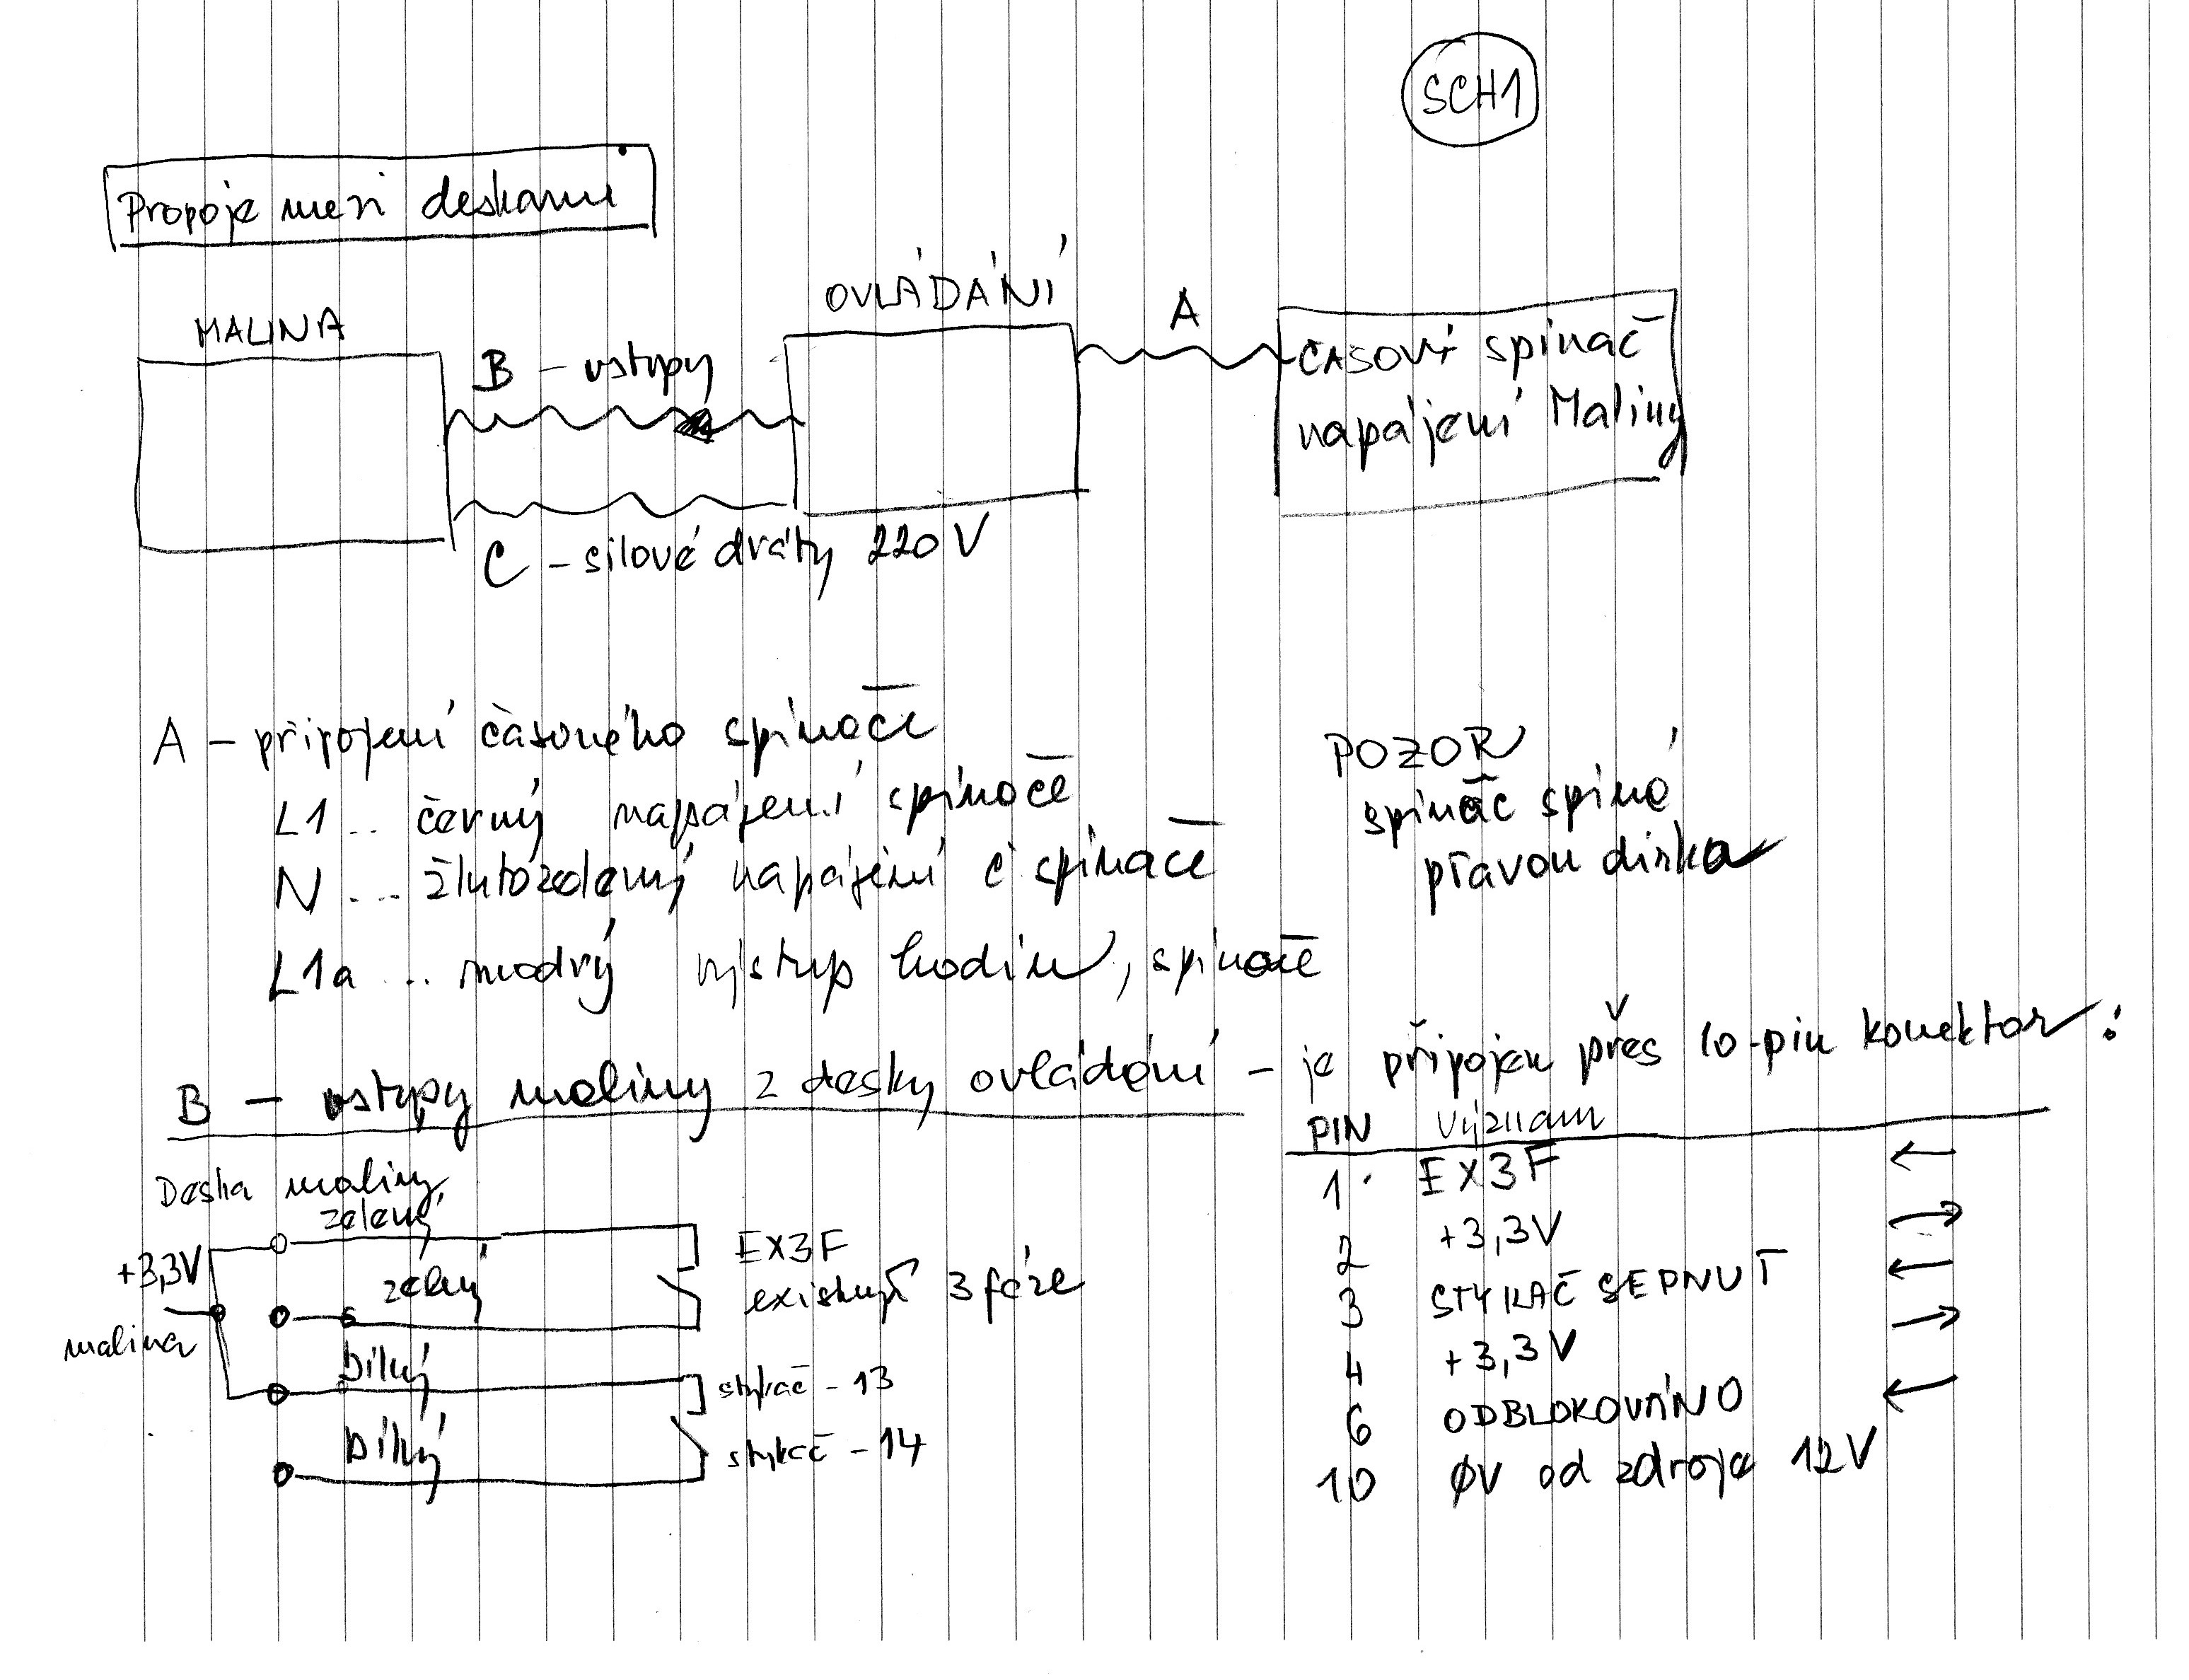 SCH1
Propoje mezi deskami
MALINA
OVLÁDÁNÍ
A
B - vstupy
časový spínač
napájení Maliny
C - silové dráty 220V
A - připojení časového spínače
L1 .. černý napájení spínače
N ... žlutozelený napájení č spínače
L1a .. modrý výstup hodin, spínače
POZOR
spínač spíná
pravou dírka
B - vstupy maliny z desky ovládání - je připojen přes 10-pin konektor:
Deska maliny
zelený
+3,3V
zelený
malina
bílý
bílý
EX3F
existují 3 fáze
stykač - 13
stykač - 14
PIN význam
1 EX3F ←
2 +3,3V →
3 STYKAČ SEPNUT ←
4 +3,3V →
6 ODBLOKOVÁNO ←
10 ØV od zdroje 12V